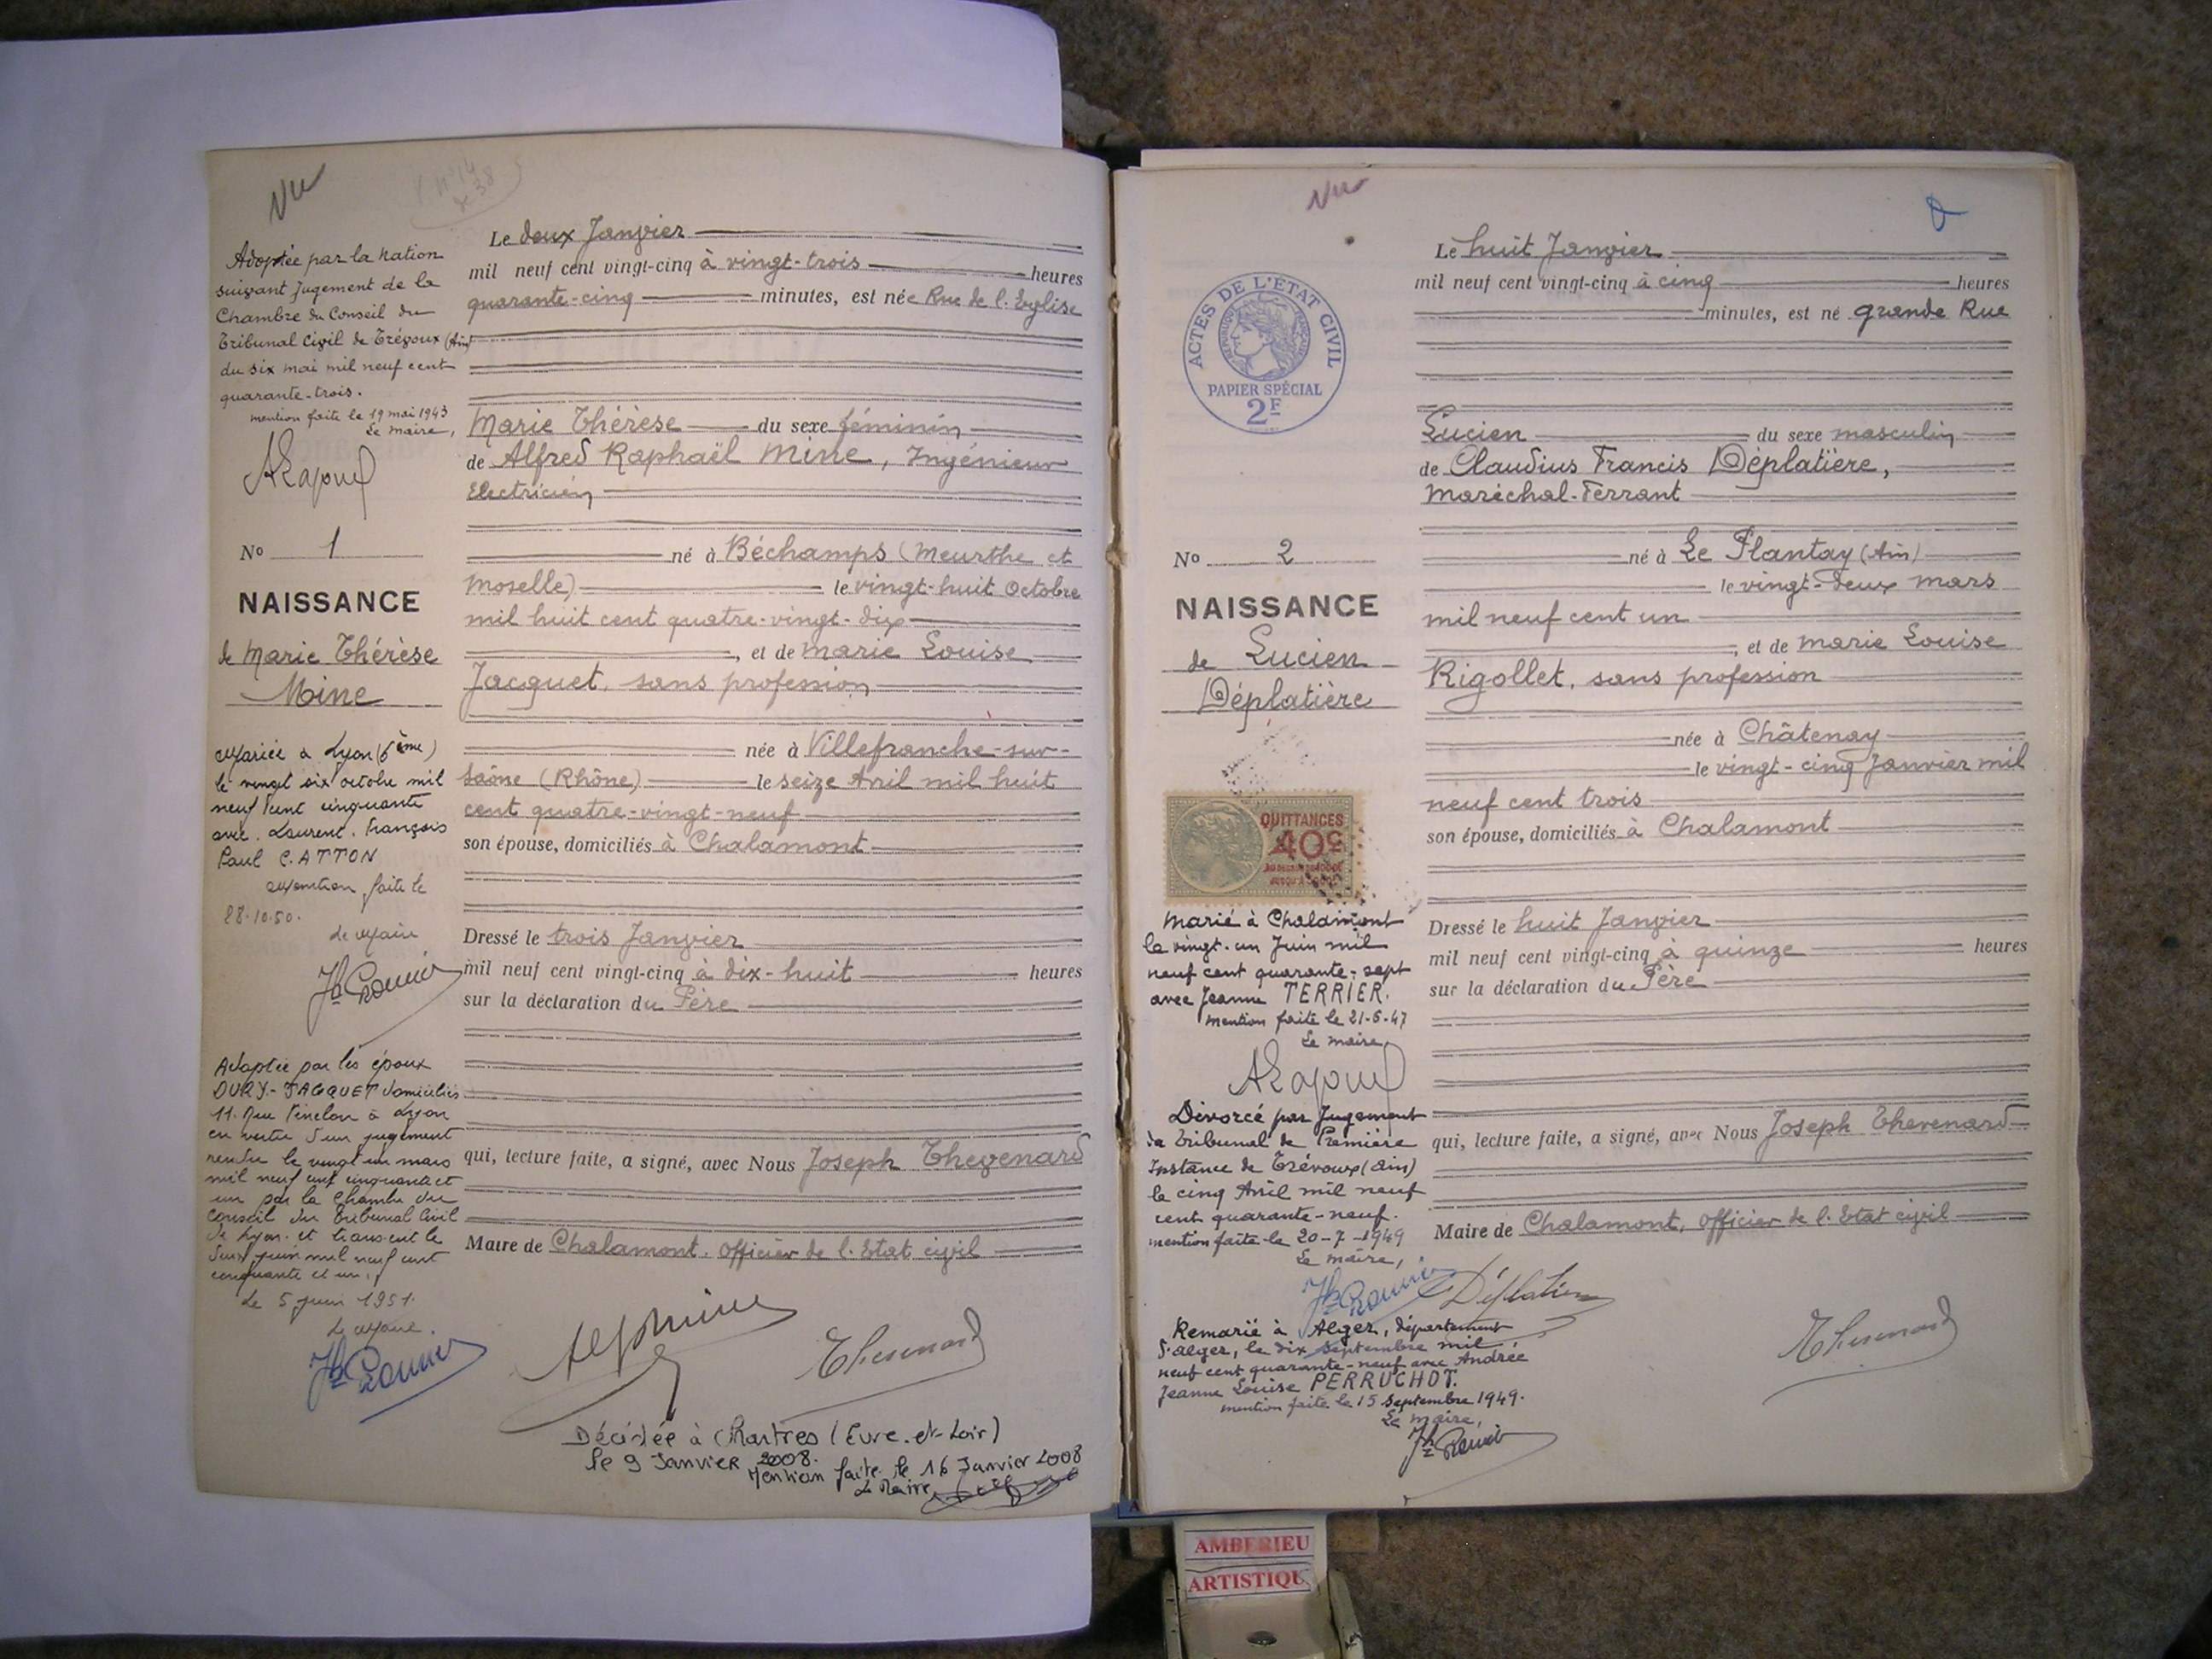 Vu
Adoptée par la Nation
suivant Jugement de la
Chambre du Conseil du
Tribunal Civil de Trévoux (Ain)
du six mai mil neuf cent
quarante-trois.
mention faite le 19 mai 1943
Le maire,
No 1
NAISSANCE
de Marie Thérèse
Mine
Mariée à Lyon (6ème)
le vingt six octobre mil
neuf cent cinquante
avec Laurent François
Paul CATTON
Mention faite le
28.10.50.
Le Maire
Adoptée par les époux
DURY-JACQUET domiciliés
11 Rue Fénelon à Lyon
en vertu d'un jugement
rendu le vingt un mars
mil neuf cent cinquante et
un par la Chambre du
Conseil du Tribunal Civil
de Lyon et transcrit le
deux juin mil neuf cent
cinquante et un.
Le 5 juin 1951.
Le Maire.
Le deux Janvier
mil neuf cent vingt-cinq à vingt-trois heures
quarante-cinq minutes, est née Rue de l'Eglise
Marie Thérèse du sexe féminin
de Alfred Raphaël Mine, Ingénieur
Electricien
né à Béchamps (Meurthe et
Moselle) le vingt-huit Octobre
mil huit cent quatre-vingt-dix
, et de Marie Louise
Jacquet, sans profession
née à Villefranche-sur-
Saône (Rhône) le seize Avril mil huit
cent quatre-vingt-neuf
son épouse, domiciliés à Chalamont
Dressé le trois Janvier
mil neuf cent vingt-cinq à dix-huit heures
sur la déclaration du Père
qui, lecture faite, a signé, avec Nous Joseph Thevenard
Maire de Chalamont, Officier de l'Etat civil
Thevenard
Décédée à Chartres (Eure-et-Loir)
le 9 Janvier 2008.
Mention faite le 16 Janvier 2008
Le Maire
Vu
ACTES DE L'ETAT CIVIL
REPUBLIQUE FRANÇAISE
PAPIER SPÉCIAL
2F
No 2
NAISSANCE
de Lucien
Déplatière
QUITTANCES
40c
Marié à Chalamont
le vingt-un Juin mil
neuf cent quarante-sept
avec Jeanne TERRIER.
mention faite le 21-6-47
Le maire,
Divorcé par Jugement
du Tribunal de Première
Instance de Trévoux (Ain)
le cinq Avril mil neuf
cent quarante-neuf.
mention faite le 20-7-1949
Le maire,
Remarié à Alger, département
d'Alger, le dix Septembre mil
neuf cent quarante-neuf avec Andrée
Jeanne Louise PERRUCHOT.
mention faite le 15 Septembre 1949.
Le maire,
Le huit Janvier
mil neuf cent vingt-cinq à cinq heures
minutes, est né grande Rue
Lucien du sexe masculin
de Claudius Francis Déplatière,
Maréchal-Ferrant
né à Le Plantay (Ain)
le vingt-deux mars
mil neuf cent un
, et de Marie Louise
Rigollet, sans profession
née à Châtenay
le vingt-cinq Janvier mil
neuf cent trois
son épouse, domiciliés à Chalamont
Dressé le huit Janvier
mil neuf cent vingt-cinq à quinze heures
sur la déclaration du Père
qui, lecture faite, a signé, avec Nous Joseph Thevenard
Maire de Chalamont, Officier de l'Etat civil
Déplatière
Thevenard
AMBERIEU
ARTISTIQU